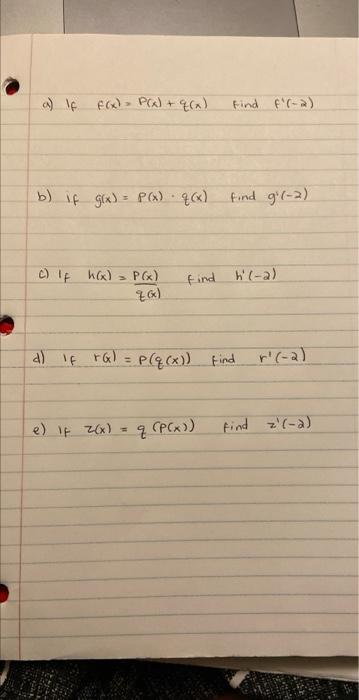 a) If f(x) = P(x) + q(x) find f'(-2)
b) if g(x) = P(x) · q(x) find g'(-2)
c) If h(x) = P(x) find h'(-2)
q(x)
d) if r(x) = P(q(x)) find r'(-2)
e) If z(x) = q (P(x)) find z'(-2)